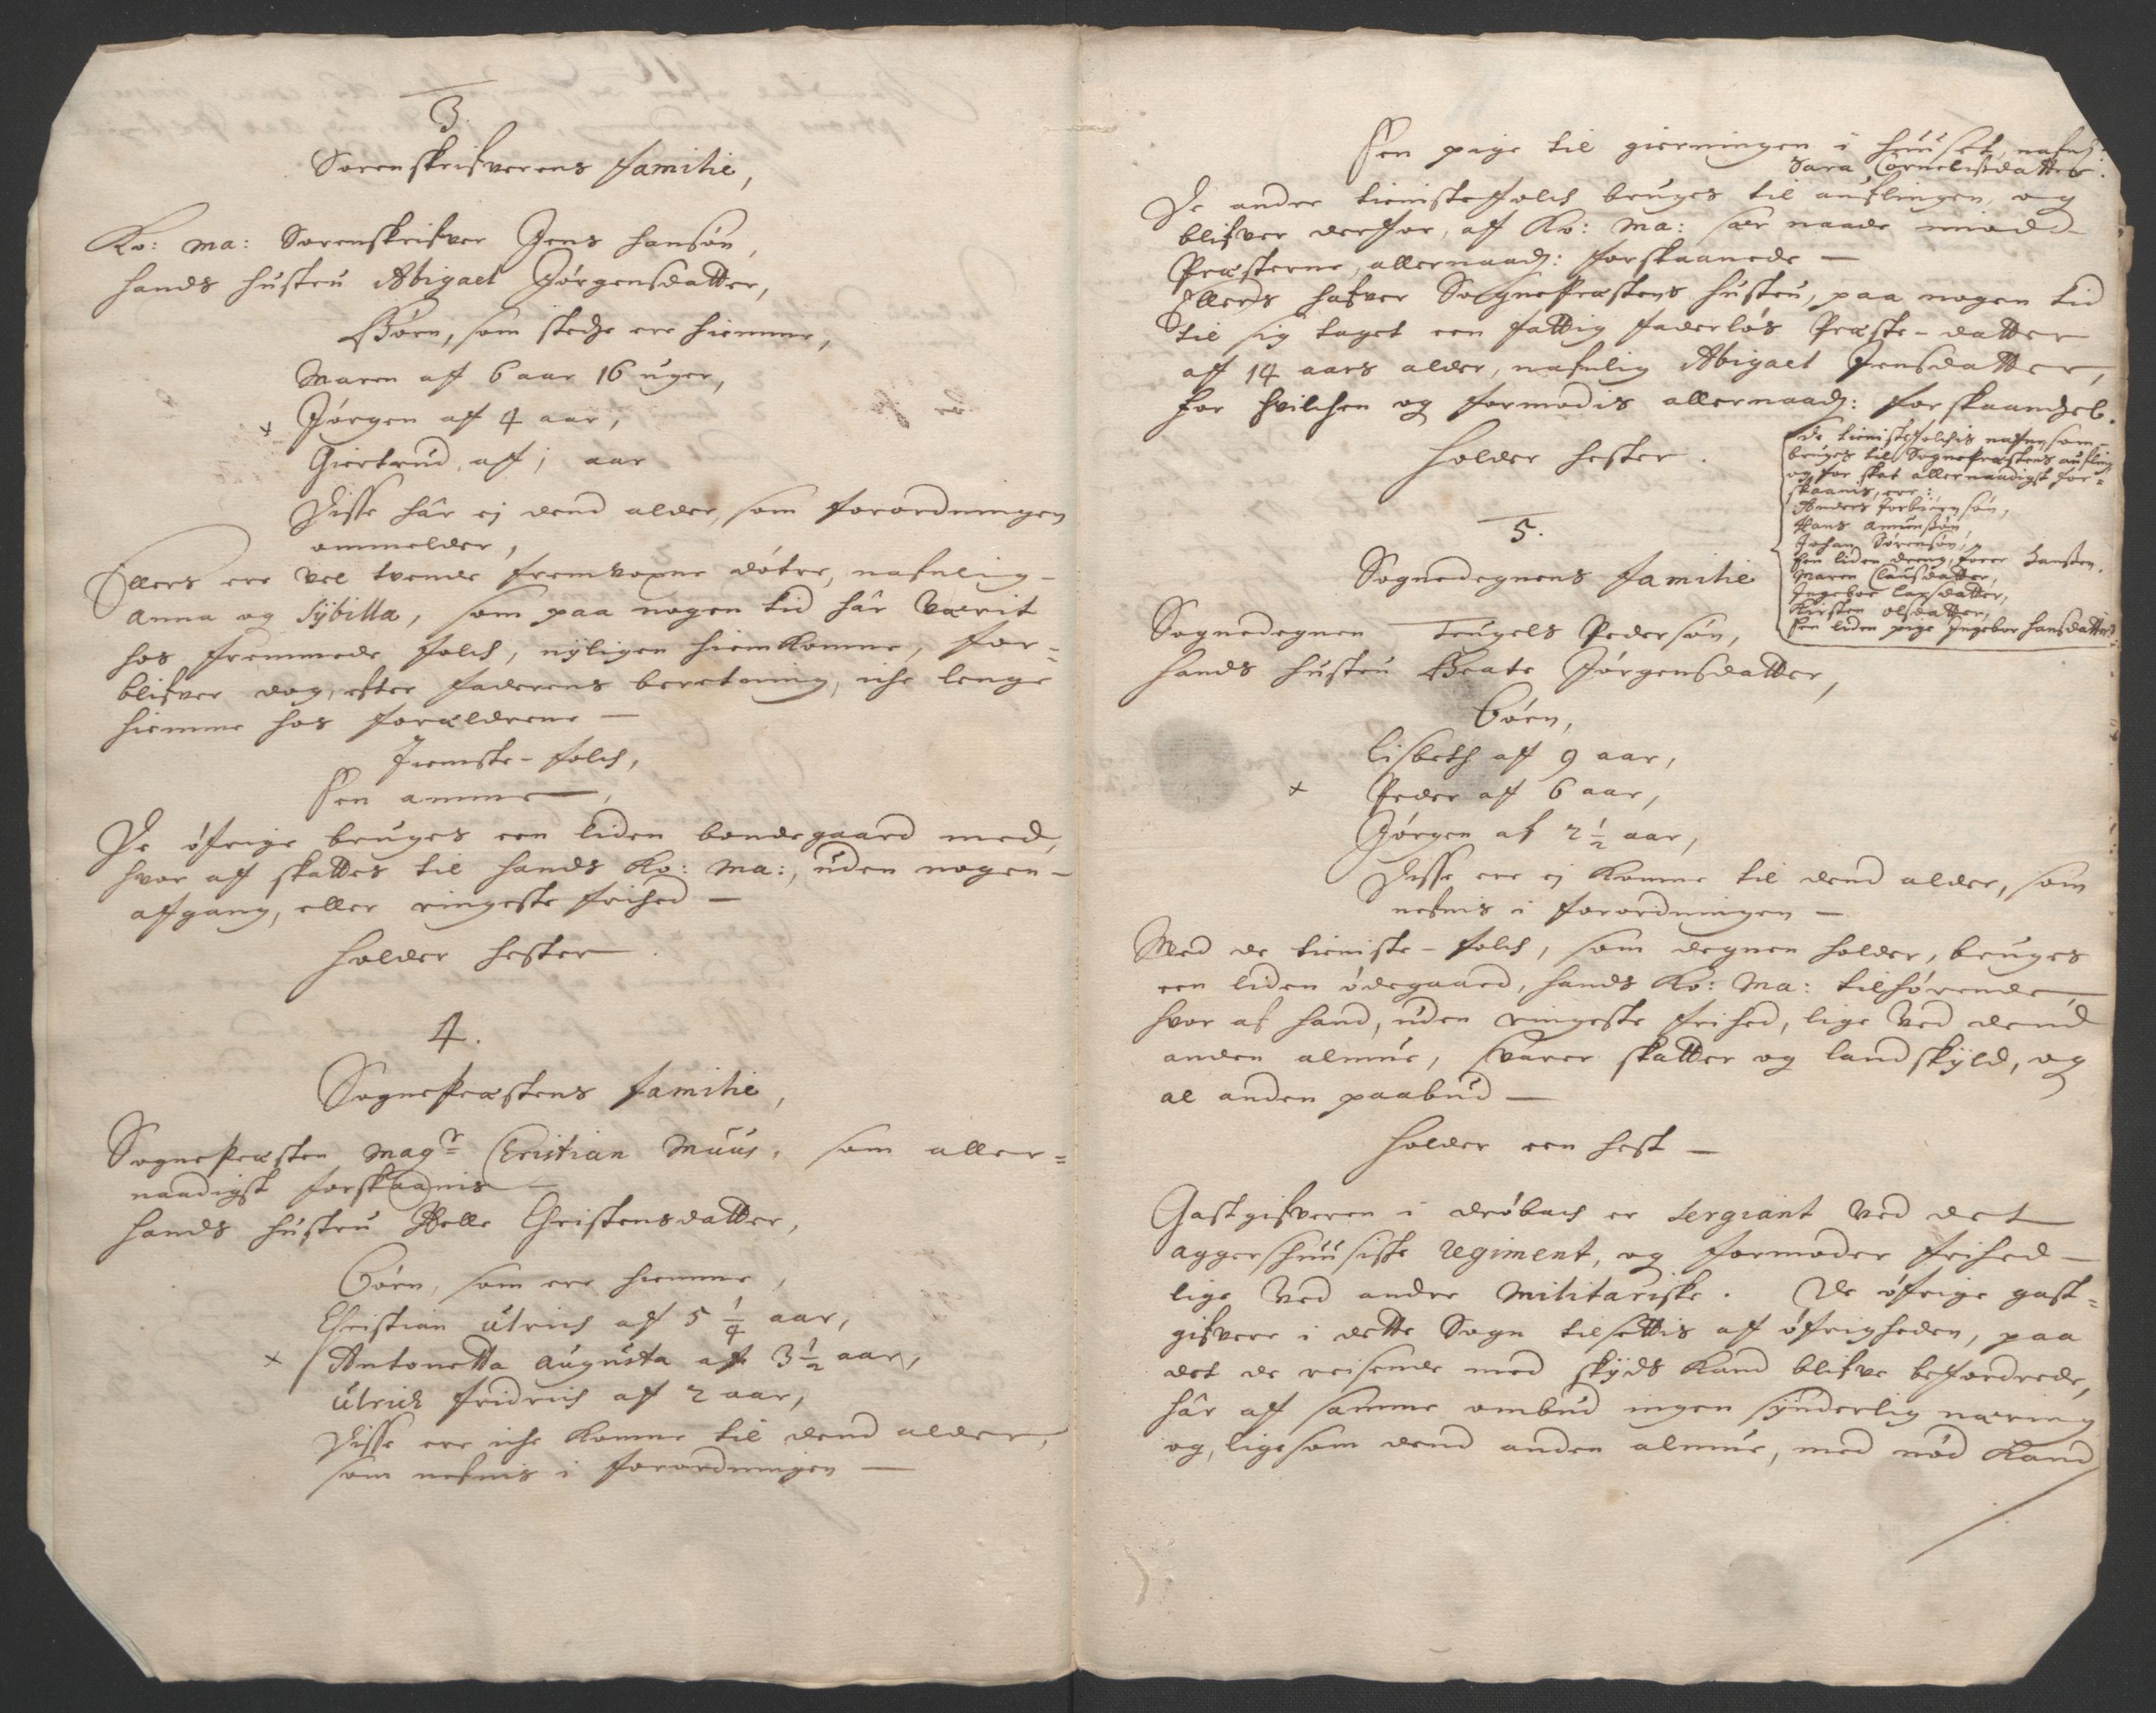 3.
Sorenskrifverens familie,
Ko: Ma: Sorenskrifver Jens Hansøn,
hands hustru Abigael Jørgensdatter,
Børn, som stedze ere hiemme,
Maren aff 6 aar 16 uger,
x Jørgen aff 4 aar,
Giertrud, aff 1 aar
Disse hâr ej dend alder, som forordningen
ommelder,
Ellers ere vel tvende fremvoxne døtre, nafnlig
Anna og Sÿbilla, som paa nogen tid hâr værit
hos fremmede folch, nÿligen hiemkomne, for=
blifver dog, efter faderens beretning, iche lenge
hiemme hos forældrene —
Tieniste-folch,
Een amme —,
De øfrige bruges een liden bondegaard med,
hvor aff skattes til hands Ko: Ma:, uden nogen
affgang, eller ringeste frihed —
Holder hester.
4.
Sognepræstens familie,
Sognepræsten Magr Christian Muus, som aller=
naadigst forskaanis —
hands hustru Helle Christensdatter,
Børn, som ere hiemme,
Christian Ulrich aff 5 1/4 aar,
x Antonetta Augusta aff 3 1/2 aar,
Ulrich Fridrich aff 2 aar,
Disse ere iche komne til dend alder,
som nefnis i forordningen —
Een pige til gierningen i huuset, nafnl:
Sara Cornelisdatter.
De andre tienistefolch bruges til auflingen, og
blifver derfor, aff Ko: Ma: sær naade imod
Præsterne, allernaadj: forskaanede —
Ellers hafver Sognepræstens hustru, paa nogen tid
til sig taget een fattig faderløs Præste-datter
aff 14 aars alder, nafnlig Abigael Jensdatter,
for hvilchen og formodis allernaadj: forskaandzel.
Holder hester.
De tienistefolchis nafne, som
bruges til Sognepræstens aufling
og for skat allernaadigst for=
skaanis, ere:
Anders Torbiørnsøn,
Hans Amundsøn,
Johan Sørensøn,
Een liden dreng, Hansen.
Maren Clausdatter,
Ingebor Larsdatter,
Kirsten Olsdatter,
Een liden pige Ingebor Hansdatter
5.
Sognedegnens familie
Sognedegnen Teugels Pedersøn,
hands hustru Beate Jørgensdatter,
Børn,
Lisbeth aff 9 aar,
x Peder aff 6 aar,
Jørgen af 2 1/2 aar,
Disse ere ej komne til dend alder, som
nefnis i forordningen —
Med de tieniste-folch, som degnen holder, bruges
een liden ødegaard, hands Ko: Ma: tilhørende,
hvor af hand, uden ringeste frihed, lige ved dend
anden almue, svarer skatter og landskÿld, og
al anden paabud —
Holder een hest —
Gastgifveren i Drøbach er Sergiant ved det
Aggershuusiske Regiment, og formoder frihed
lige ved andre Militariske. De øfrige gast=
gifvere i dette Sogn tilsettis aff øfrigheden, paa
det de reisende med skÿds kand blifve befordrede,
hâr aff samme ombud ingen sÿnderlig næring
og, ligesom dend anden almue, med nød kand